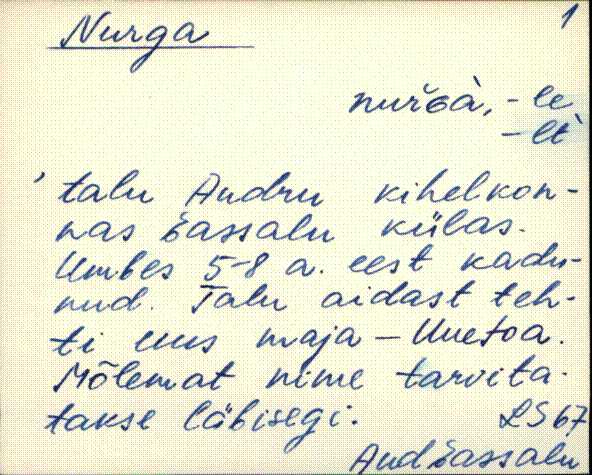 Nurga
1
nurɢà, -le
-lt
talu Andru kihelkon-
nas Ɛassalu külas.
Umbes 5-8 a. eest kadu-
nud. Talu aidast teh-
ti uus maja - Uuetoa.
Mõlemat nime tarvita-
takse läbisegi.
LS 67
And Ɛassalu